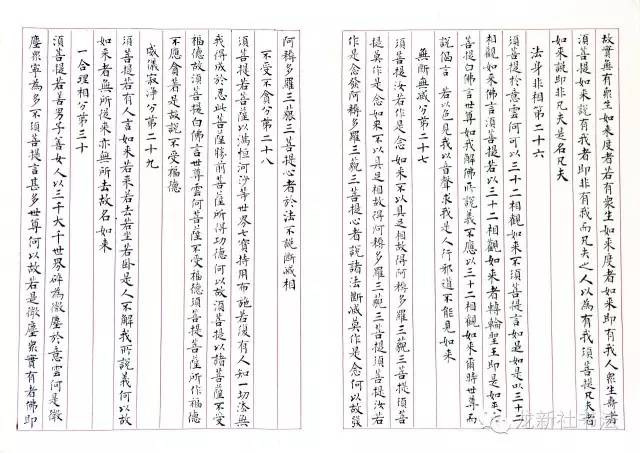 故實無有衆生如來度者若有衆生如來度者如來即有我人衆生壽者
須菩提如來說有我者即非有我而凡夫之人以為有我須菩提凡夫者
如來說即非凡夫是名凡夫
法身非相第二十六
須菩提於意雲何可以三十二相觀如來不須菩提言如是如是以三十二
相觀如來佛言須菩提若以三十二相觀如來者轉輪聖王即是如來須
菩提白佛言世尊如我解佛所說義不應以三十二相觀如來爾時世尊而
說偈言若以色見我以音聲求我是人行邪道不能見如來
無斷無滅分第二十七
須菩提汝若作是念如來不以具足相故得阿耨多羅三藐三菩提須菩
提莫作是念如來不以具足相故得阿耨多羅三藐三菩提須菩提汝若
作是念發阿耨多羅三藐三菩提心者說諸法斷滅莫作是念何以故發
阿耨多羅三藐三菩提心者於法不說斷滅相
不受不貪分第二十八
須菩提若菩薩以滿恒河沙等世界七寶持用布施若復有人知一切法無
我得成於忍此菩薩勝前菩薩所得功德何以故須菩提以諸菩薩不受
福德故須菩提白佛言世尊雲何菩薩不受福德須菩提菩薩所作福德
不應貪著是故說不受福德
威儀寂淨分第二十九
須菩提若有人言如來若來若去若坐若臥是人不解我所說義何以故
如來者無所從來亦無所去故名如來
一合理相分第三十
須菩提若善男子善女人以三千大千世界碎為微塵於意雲何是微
塵衆寧為多不須菩提言甚多世尊何以故若是微塵衆實有者佛即
龙新社书法